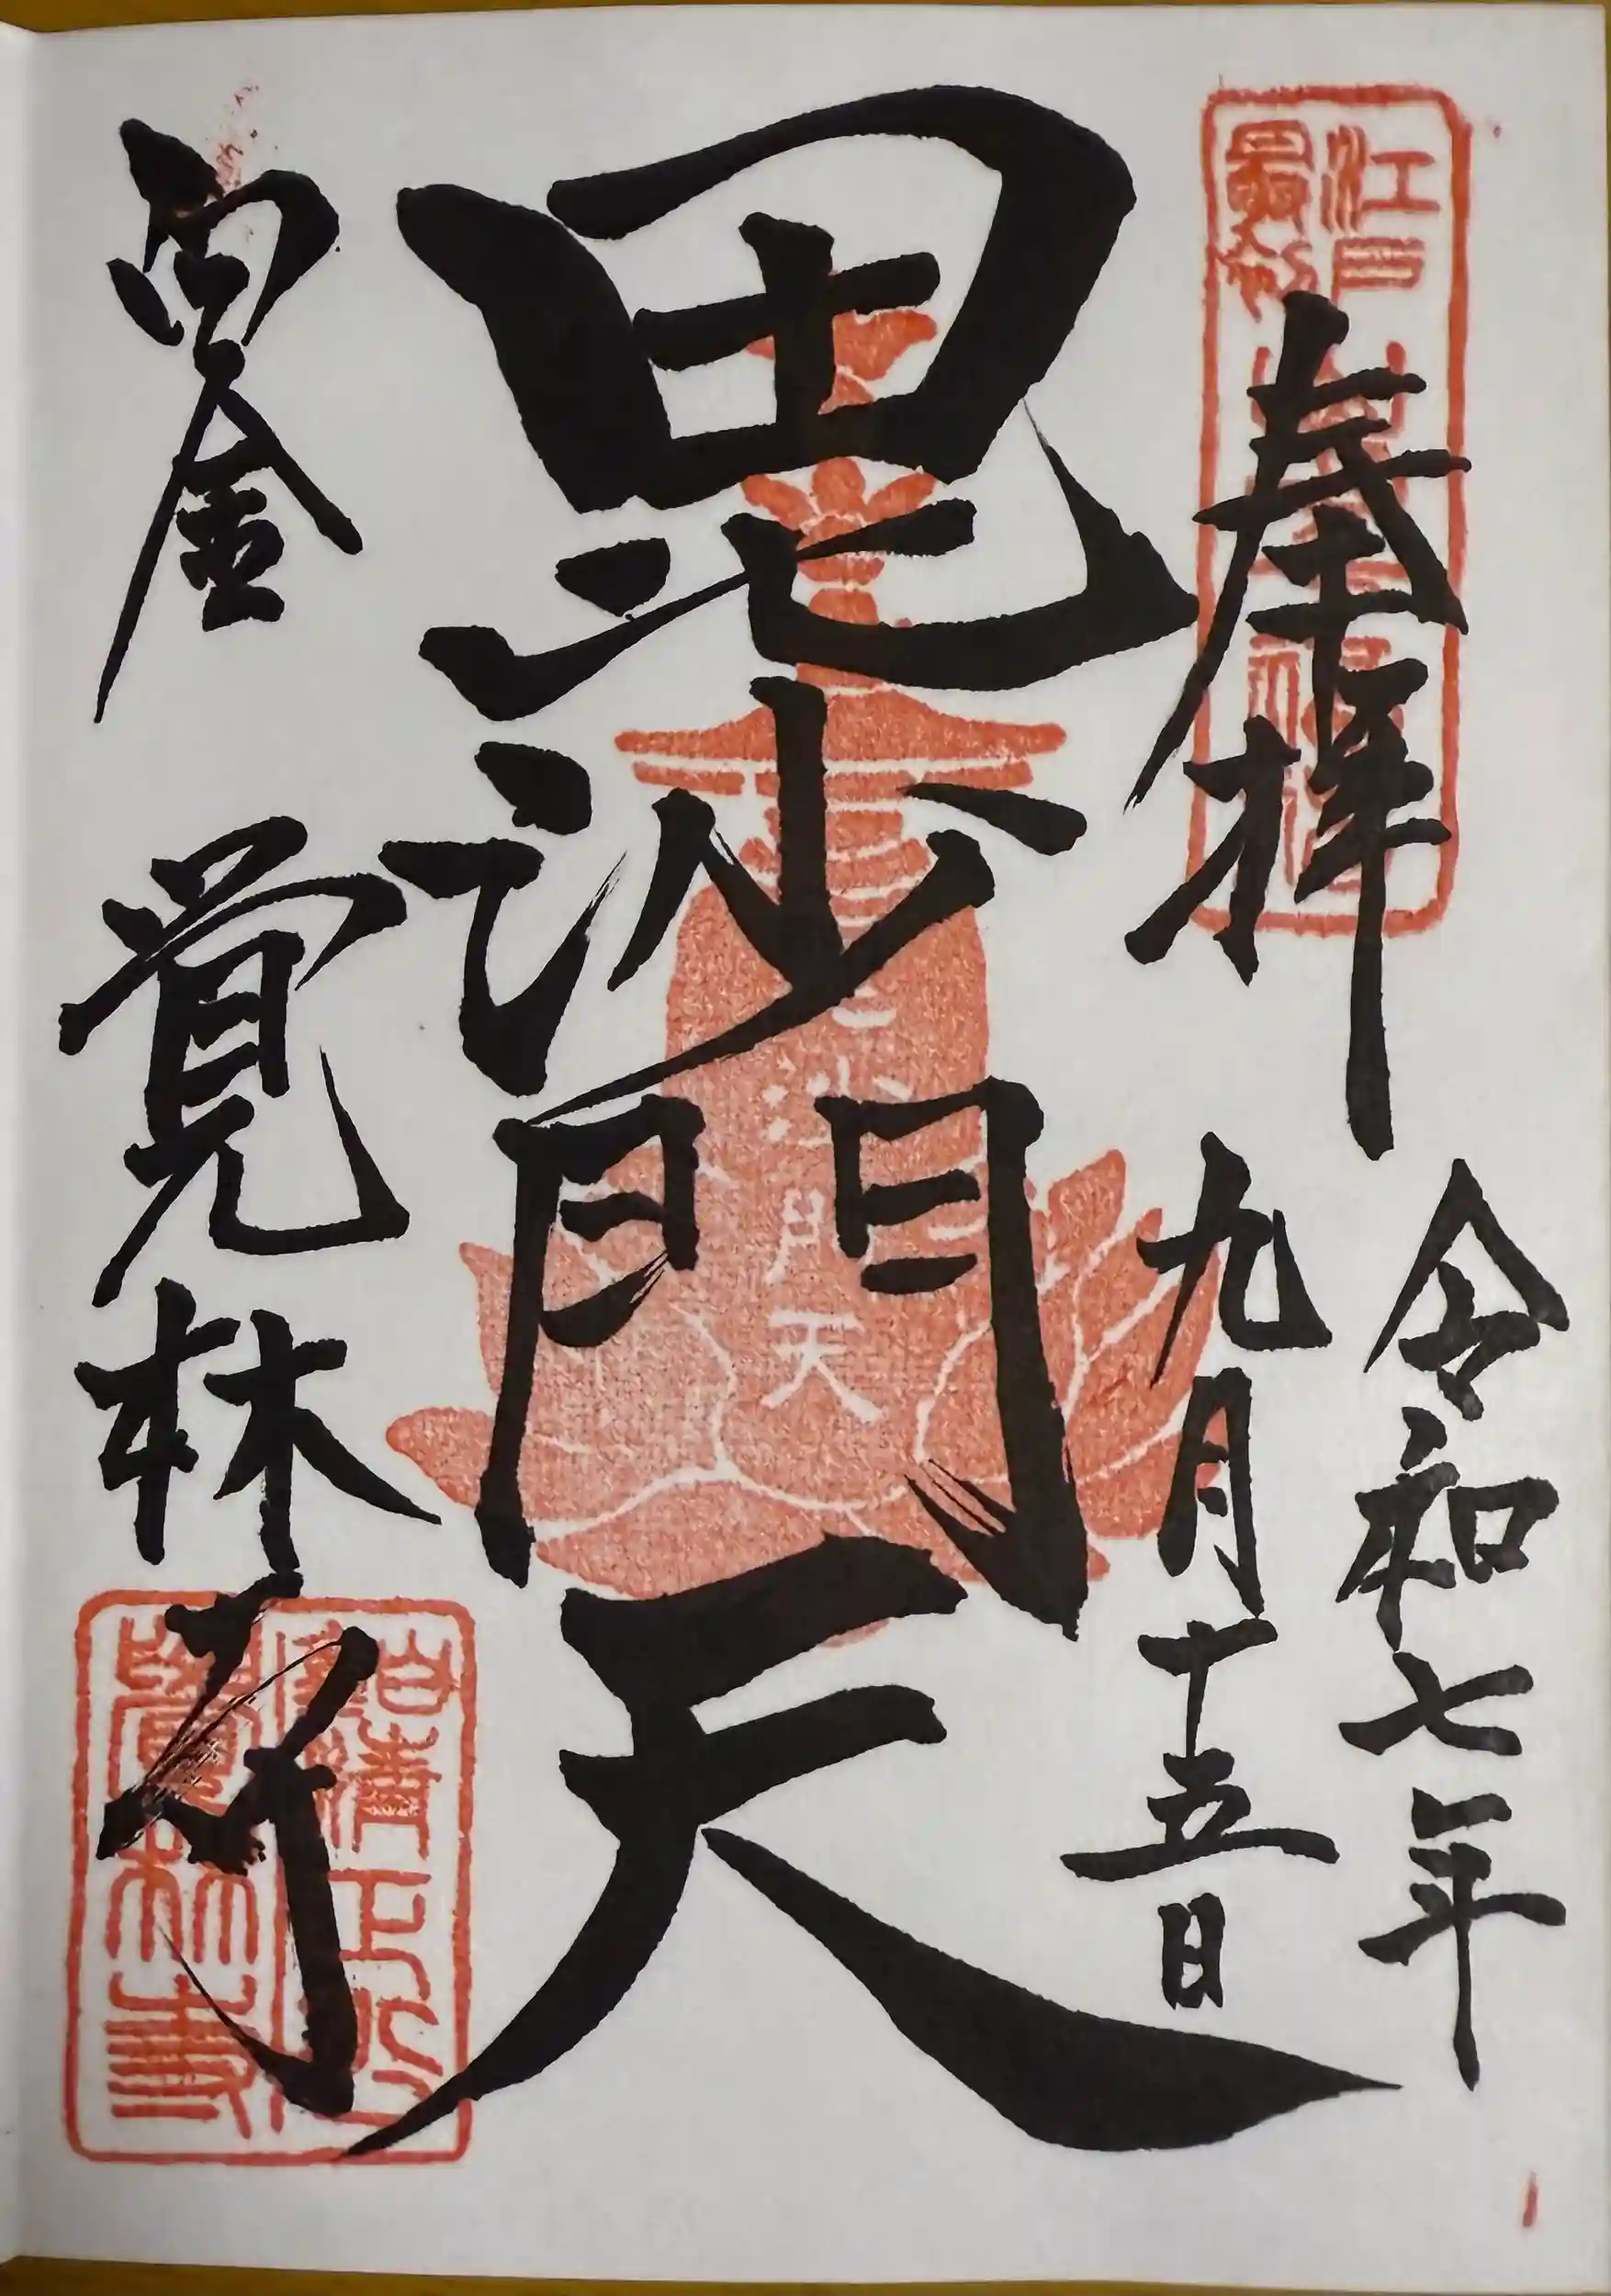 奉拝
令和七年
九月十五日
毘沙門天
白金
覚林寺
江戸最初
沙門天
白金清正公
覺林寺